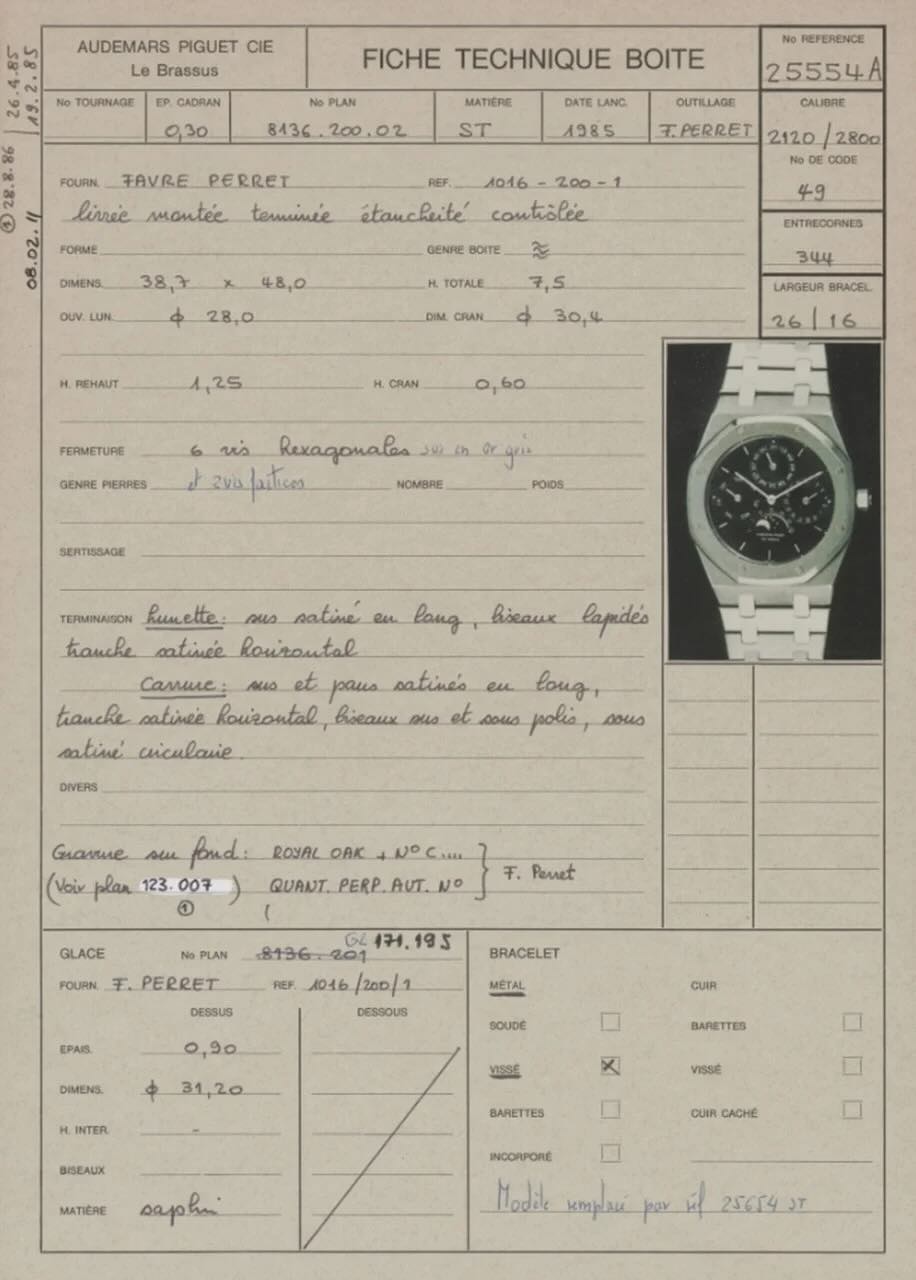 26.4.85
19.2.85
① 28.8.86
08.02.11
AUDEMARS PIGUET CIE
Le Brassus
FICHE TECHNIQUE BOITE
No REFERENCE
25554A
No TOURNAGE
EP. CADRAN
0,30
No PLAN
8136.200.02
MATIÈRE
ST
DATE LANC.
1985
OUTILLAGE
F. PERRET
CALIBRE
2120/2800
No DE CODE
49
ENTRECORNES
344
LARGEUR BRACEL.
26/16
FOURN. FAVRE PERRET REF. 1016-200-1
livrée montée terminée étancheité contrôlée
FORME GENRE BOITE ≈
DIMENS. 38,7 x 48,0 H. TOTALE 7,5
OUV. LUN. ϕ 28,0 DIM. CRAN ϕ 30,4
H. REHAUT 1,25 H. CRAN 0,60
FERMETURE 6 vis hexagonales en or gris
GENRE PIERRES et 2 vis factices NOMBRE POIDS
SERTISSAGE
TERMINAISON lunette: sus satiné en long, biseaux lapidés
tranche satinée horizontal
Carrure: sus et pans satinés en long,
tranche satinée horizontal, biseaux sus et sous polis, sous
satiné circulaire.
DIVERS
Gravure sur fond: ROYAL OAK + No C....
(Voir plan 123.007) QUANT. PERP. AUT. No
F. Perret
①
GLACE No PLAN 8136.201 GL 171.195
FOURN. F. PERRET REF. 1016/200/1
DESSUS DESSOUS
EPAIS. 0,90
DIMENS. ϕ 31,20
H. INTER. -
BISEAUX
MATIÈRE saphir
BRACELET
MÉTAL CUIR
SOUDÉ BARETTES
VISSÉ X VISSÉ
BARETTES CUIR CACHÉ
INCORPORÉ
Modèle remplacé par réf 25654 ST